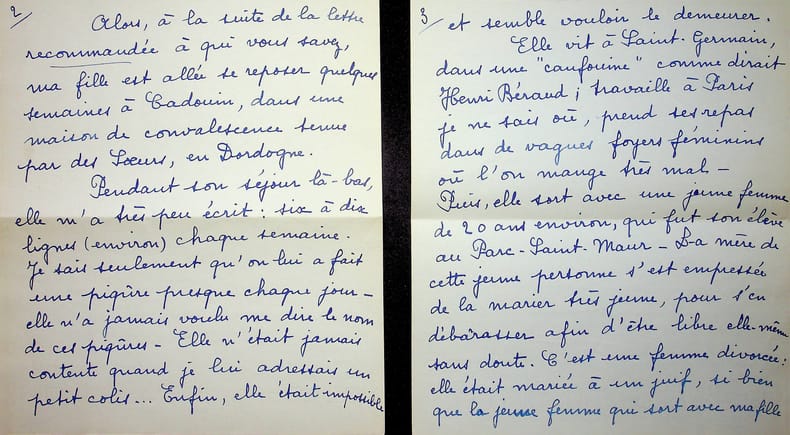 2/
Alors, à la suite de la lettre
recommandée à qui vous savez,
ma fille est allée se reposer quelques
semaines à Cadouin, dans une
maison de convalescence tenue
par des Sœurs, en Dordogne.
Pendant son séjour là-bas,
elle m'a très peu écrit : six à dix
lignes (environ) chaque semaine.
Je sais seulement qu'on lui a fait
une piqûre presque chaque jour –
elle n'a jamais voulu me dire le nom
de ces piqûres – Elle n'était jamais
contente quand je lui adressais un
petit colis... Enfin, elle était impossible
3/
et semble vouloir le demeurer.
Elle vit à Saint-Germain,
dans une "canfouine" comme dirait
Henri Béraud ; travaille à Paris
je ne sais où, prend ses repas
dans de vagues foyers féminins
où l'on mange très mal –
Puis, elle sort avec une jeune femme
de 20 ans environ, qui fut son élève
au Parc-Saint-Maur – La mère de
cette jeune personne s'est empressée
de la marier très jeune, pour s'en
débarasser afin d'être libre elle-même
sans doute. C'est une femme divorcée :
elle était mariée à un juif, si bien
que la jeune femme qui sort avec ma fille